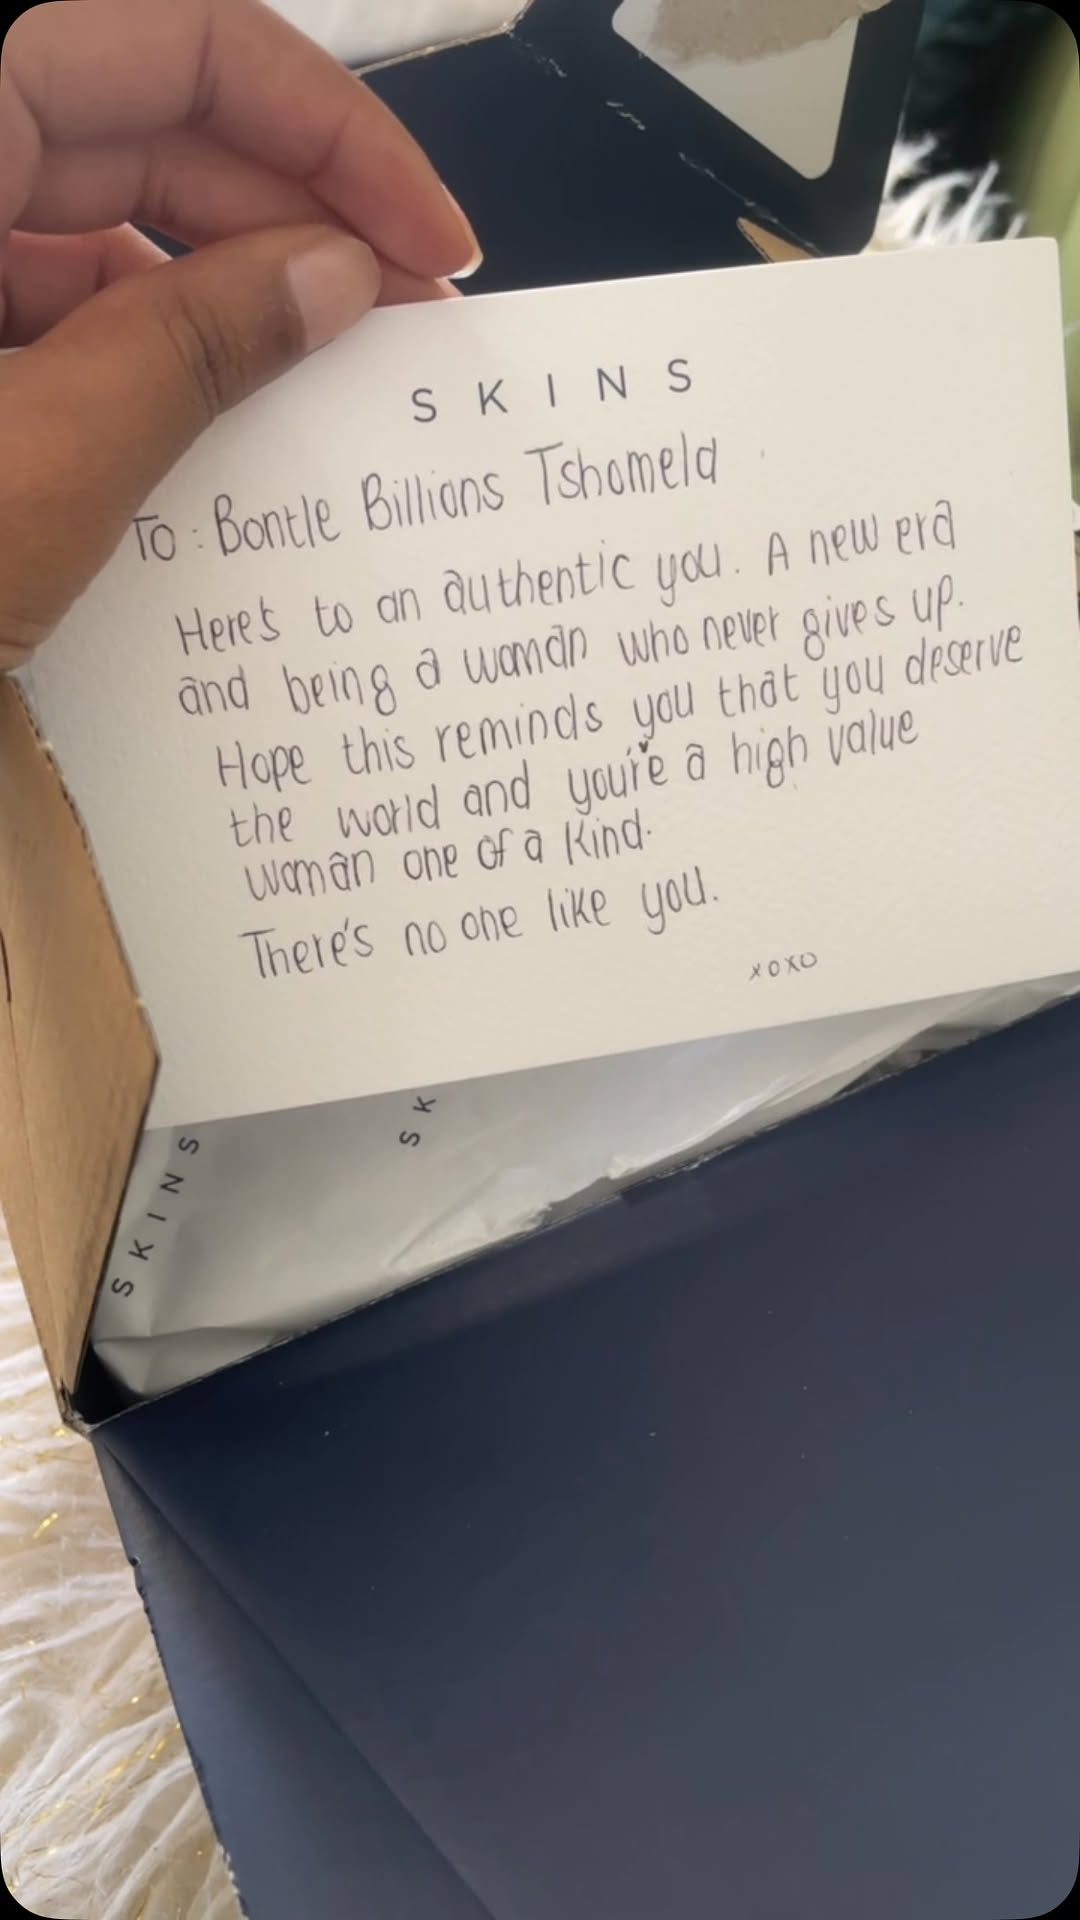 S K I N S
To : Bontle Billions Tshomela
Here's to an authentic you. A new era
and being a woman who never gives up.
Hope this reminds you that you deserve
the world and you're a high value
woman one of a kind.
There's no one like you.
xoxo
S K I N S
S K